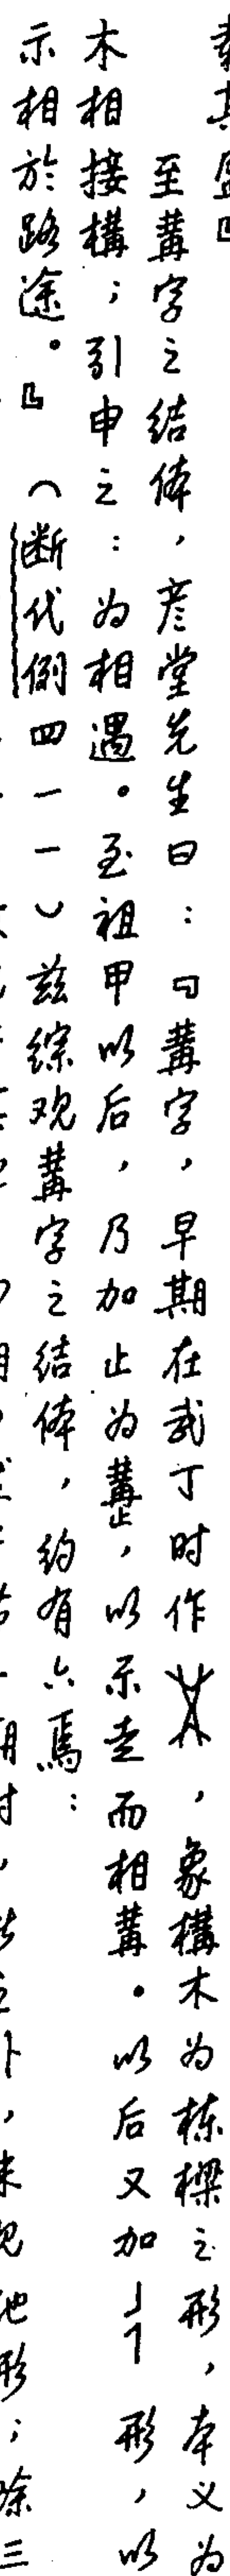 至冓字之结体，彦堂先生曰：『冓字，早期在武丁时作，象構木为栋樑之形，本义为
木相接構；引申之：为相遇。至祖甲以后，乃加止为，以示走而相冓。以后又加形，以
示相於路途。』（断代例四一一）兹综观冓字之结体，约有六焉：